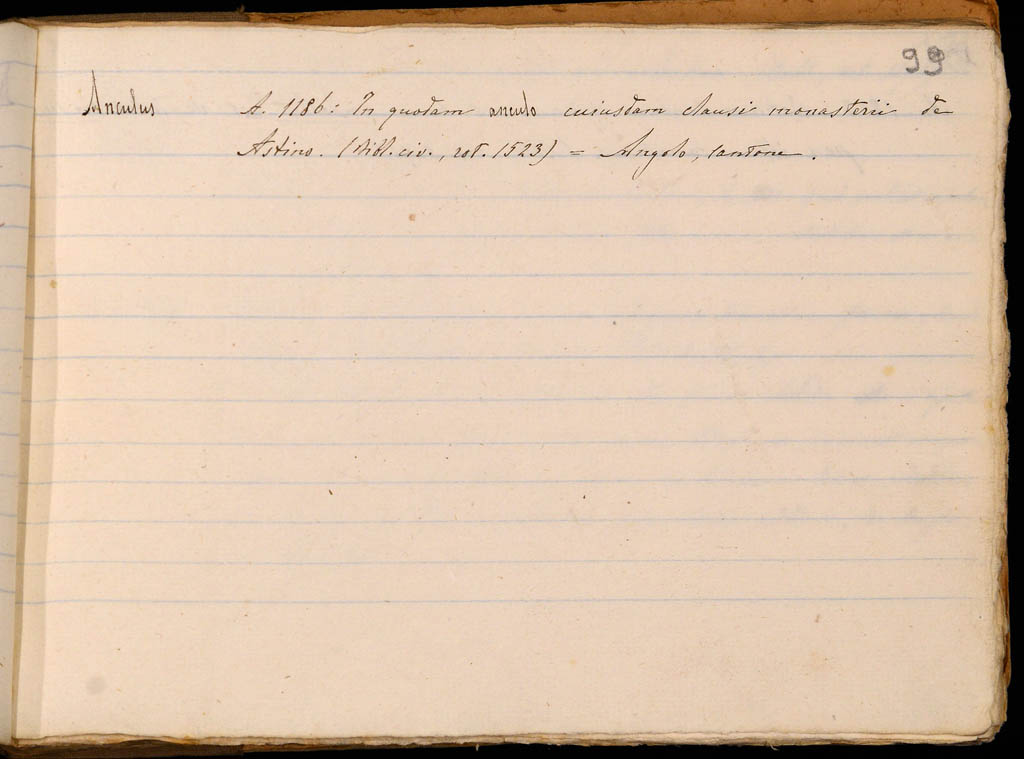 99
Anculus A. 1186: In quodam anculo cuiusdam clausi monasterii de
Astino. (Bibl. civ., rot. 1523) = Angolo, cantone.